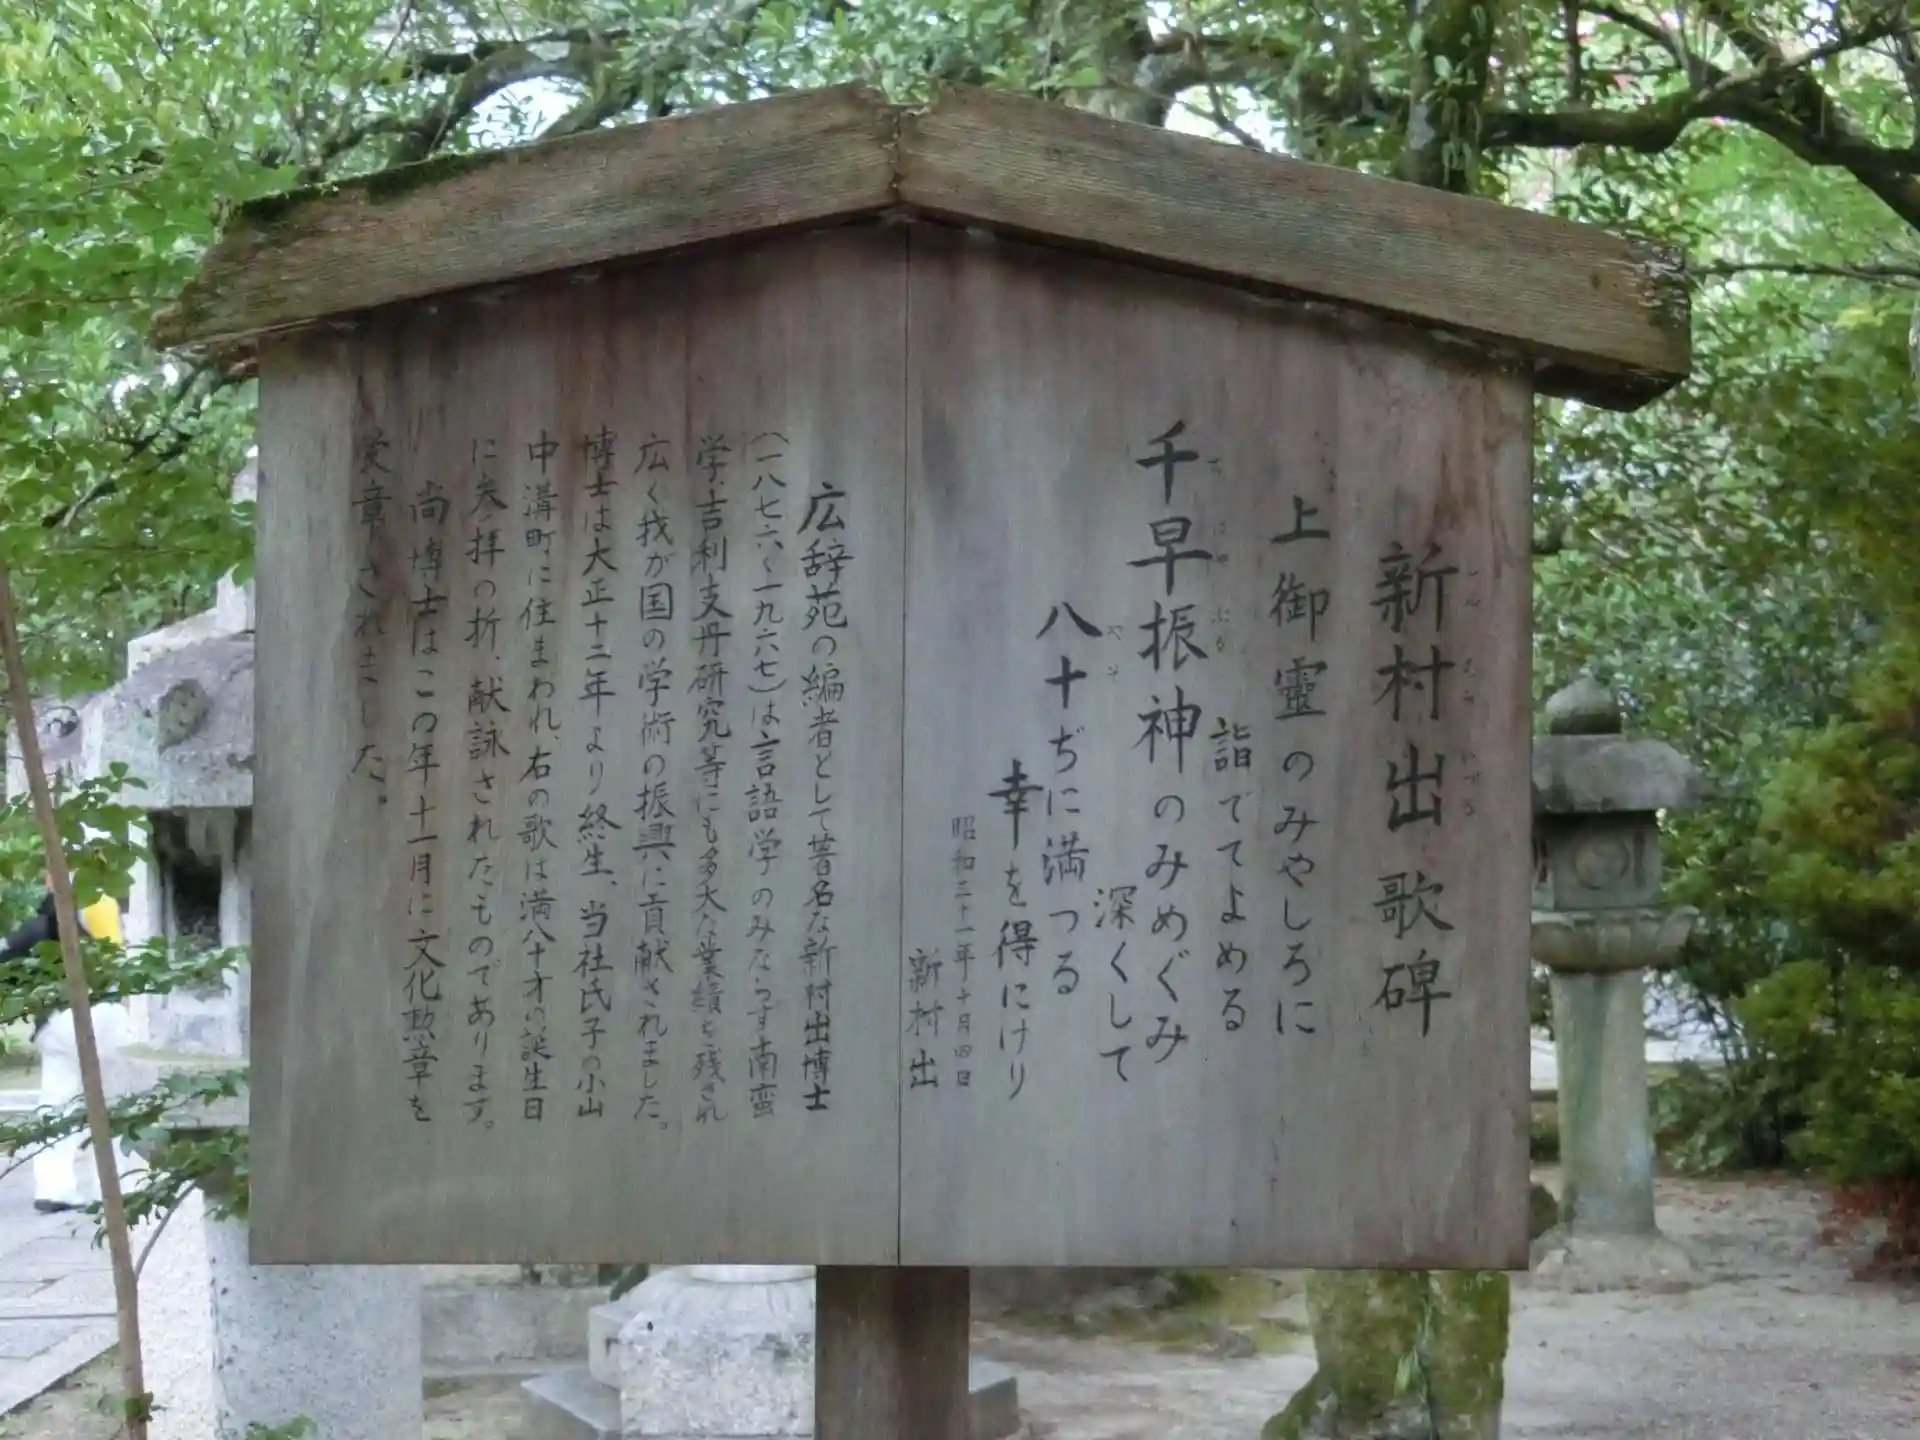 新村出歌碑
しんむらいずる
上御靈のみやしろに
詣でてよめる
千早振神のみめぐみ
ちはやぶる
深くして
八十ぢに満つる
やそ
幸を得にけり
昭和三十一年十月四日
新村出
広辞苑の編者として著名な新村出博士
(一八七六〜一九六七)は言語学のみならず南蛮
学、吉利支丹研究等にも多大な業績を残され
広く我が国の学術の振興に貢献されました。
博士は大正十二年より終生、当社氏子の小山
中溝町に住まわれ、右の歌は満八十才の誕生日
に参拝の折、献詠されたものであります。
尚博士はこの年十一月に文化勲章を
受章されました。